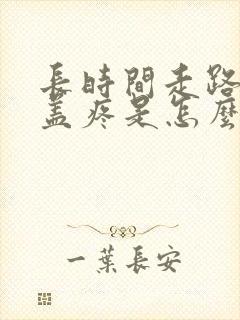 長時間走路
蓋疼是怎麼
一葉長安